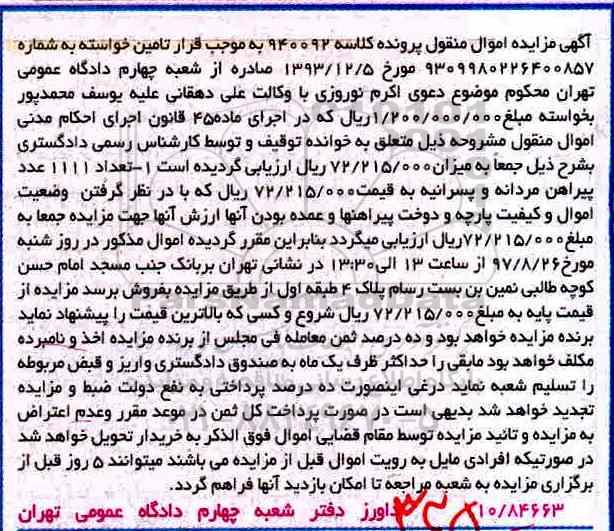 آگهی مزایده اموال منقول پرونده کلاسه ۹۴۰۰۹۲ به موجب قرار تامین خواسته به شماره
۹۳۰۹۹۸۰۲۲۶۴۰۰۸۵۷ مورخ ۱۳۹۳/۱۲/۵ صادره از شعبه چهارم دادگاه عمومی
تهران محکوم موضوع دعوی اکرم نوروزی با وکالت علی دهقانی علیه یوسف محمدپور
بخواسته مبلغ۱/۲۰۰/۰۰۰/۰۰۰ریال که در اجرای ماده۴۵ قانون اجرای احکام مدنی
اموال منقول مشروحه ذیل متعلق به خوانده توقیف و توسط کارشناس رسمی دادگستری
بشرح ذیل جمعاً به میزان۷۲/۲۱۵/۰۰۰ ریال ارزیابی گردیده است ۱-تعداد ۱۱۱۱ عدد
پیراهن مردانه و پسرانیه به قیمت۷۲/۲۱۵/۰۰۰ ریال که با در نظر گرفتن وضعیت
اموال و کیفیت پارچه و دوخت پیراهنها و عمده بودن آنها ارزش آنها جهت مزایده جمعا به
مبلغ۷۲/۲۱۵/۰۰۰ریال ارزیابی میگردد بنابراین مقرر گردیده اموال مذکور در روز شنبه
مورخ۹۷/۸/۲۶ از ساعت ۱۳ الی۱۳:۳۰ در نشانی تهران بربانک جنب مسجد امام حسن
کوچه طالبی نمین بن بست رسام پلاک ۴ طبقه اول از طریق مزایده بفروش برسد مزایده از
قیمت پایه به مبلغ۷۲/۲۱۵/۰۰۰ ریال شروع و کسی که بالاترین قیمت را پیشنهاد نماید
برنده مزایده خواهد بود و ده درصد ثمن معامله فی مجلس از برنده مزایده اخذ و نامبرده
مکلف خواهد بود مابقی را حداکثر ظرف یک ماه به صندوق دادگستری واریز و قبض مربوطه
را تسلیم شعبه نماید درغی اینصورت ده درصد پرداختی به نفع دولت ضبط و مزایده
تجدید خواهد شد بدیهی است در صورت پرداخت کل ثمن در موعد مقرر وعدم اعتراض
به مزایده و تائید مزایده توسط مقام قضایی اموال فوق الذکر به خریدار تحویل خواهد شد
در صورتیکه افرادی مایل به رویت اموال قبل از مزایده می باشند میتوانند ۵ روز قبل از
برگزاری مزایده به شعبه مراجعه تا امکان بازدید آنها فراهم گردد.
۱۱۰/۸۴۶۶۳ دفتر شعبه چهارم دادگاه عمومی تهران